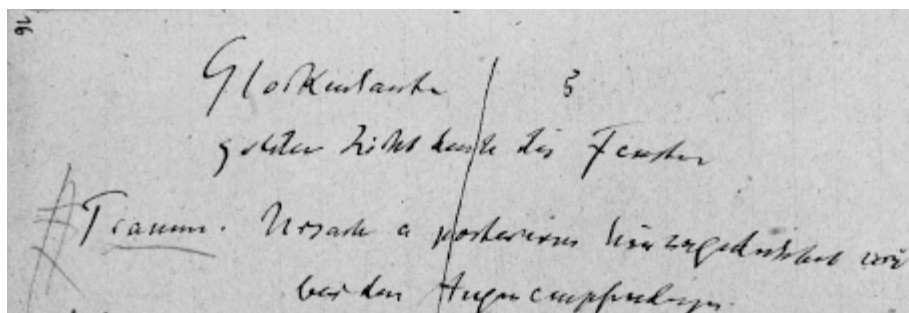 16
Glockenlaute 3
golden Licht durch die Fenster
# Traum. Ursache a posteriori hinzugedichtet wie
bei den Augenempfindungen.